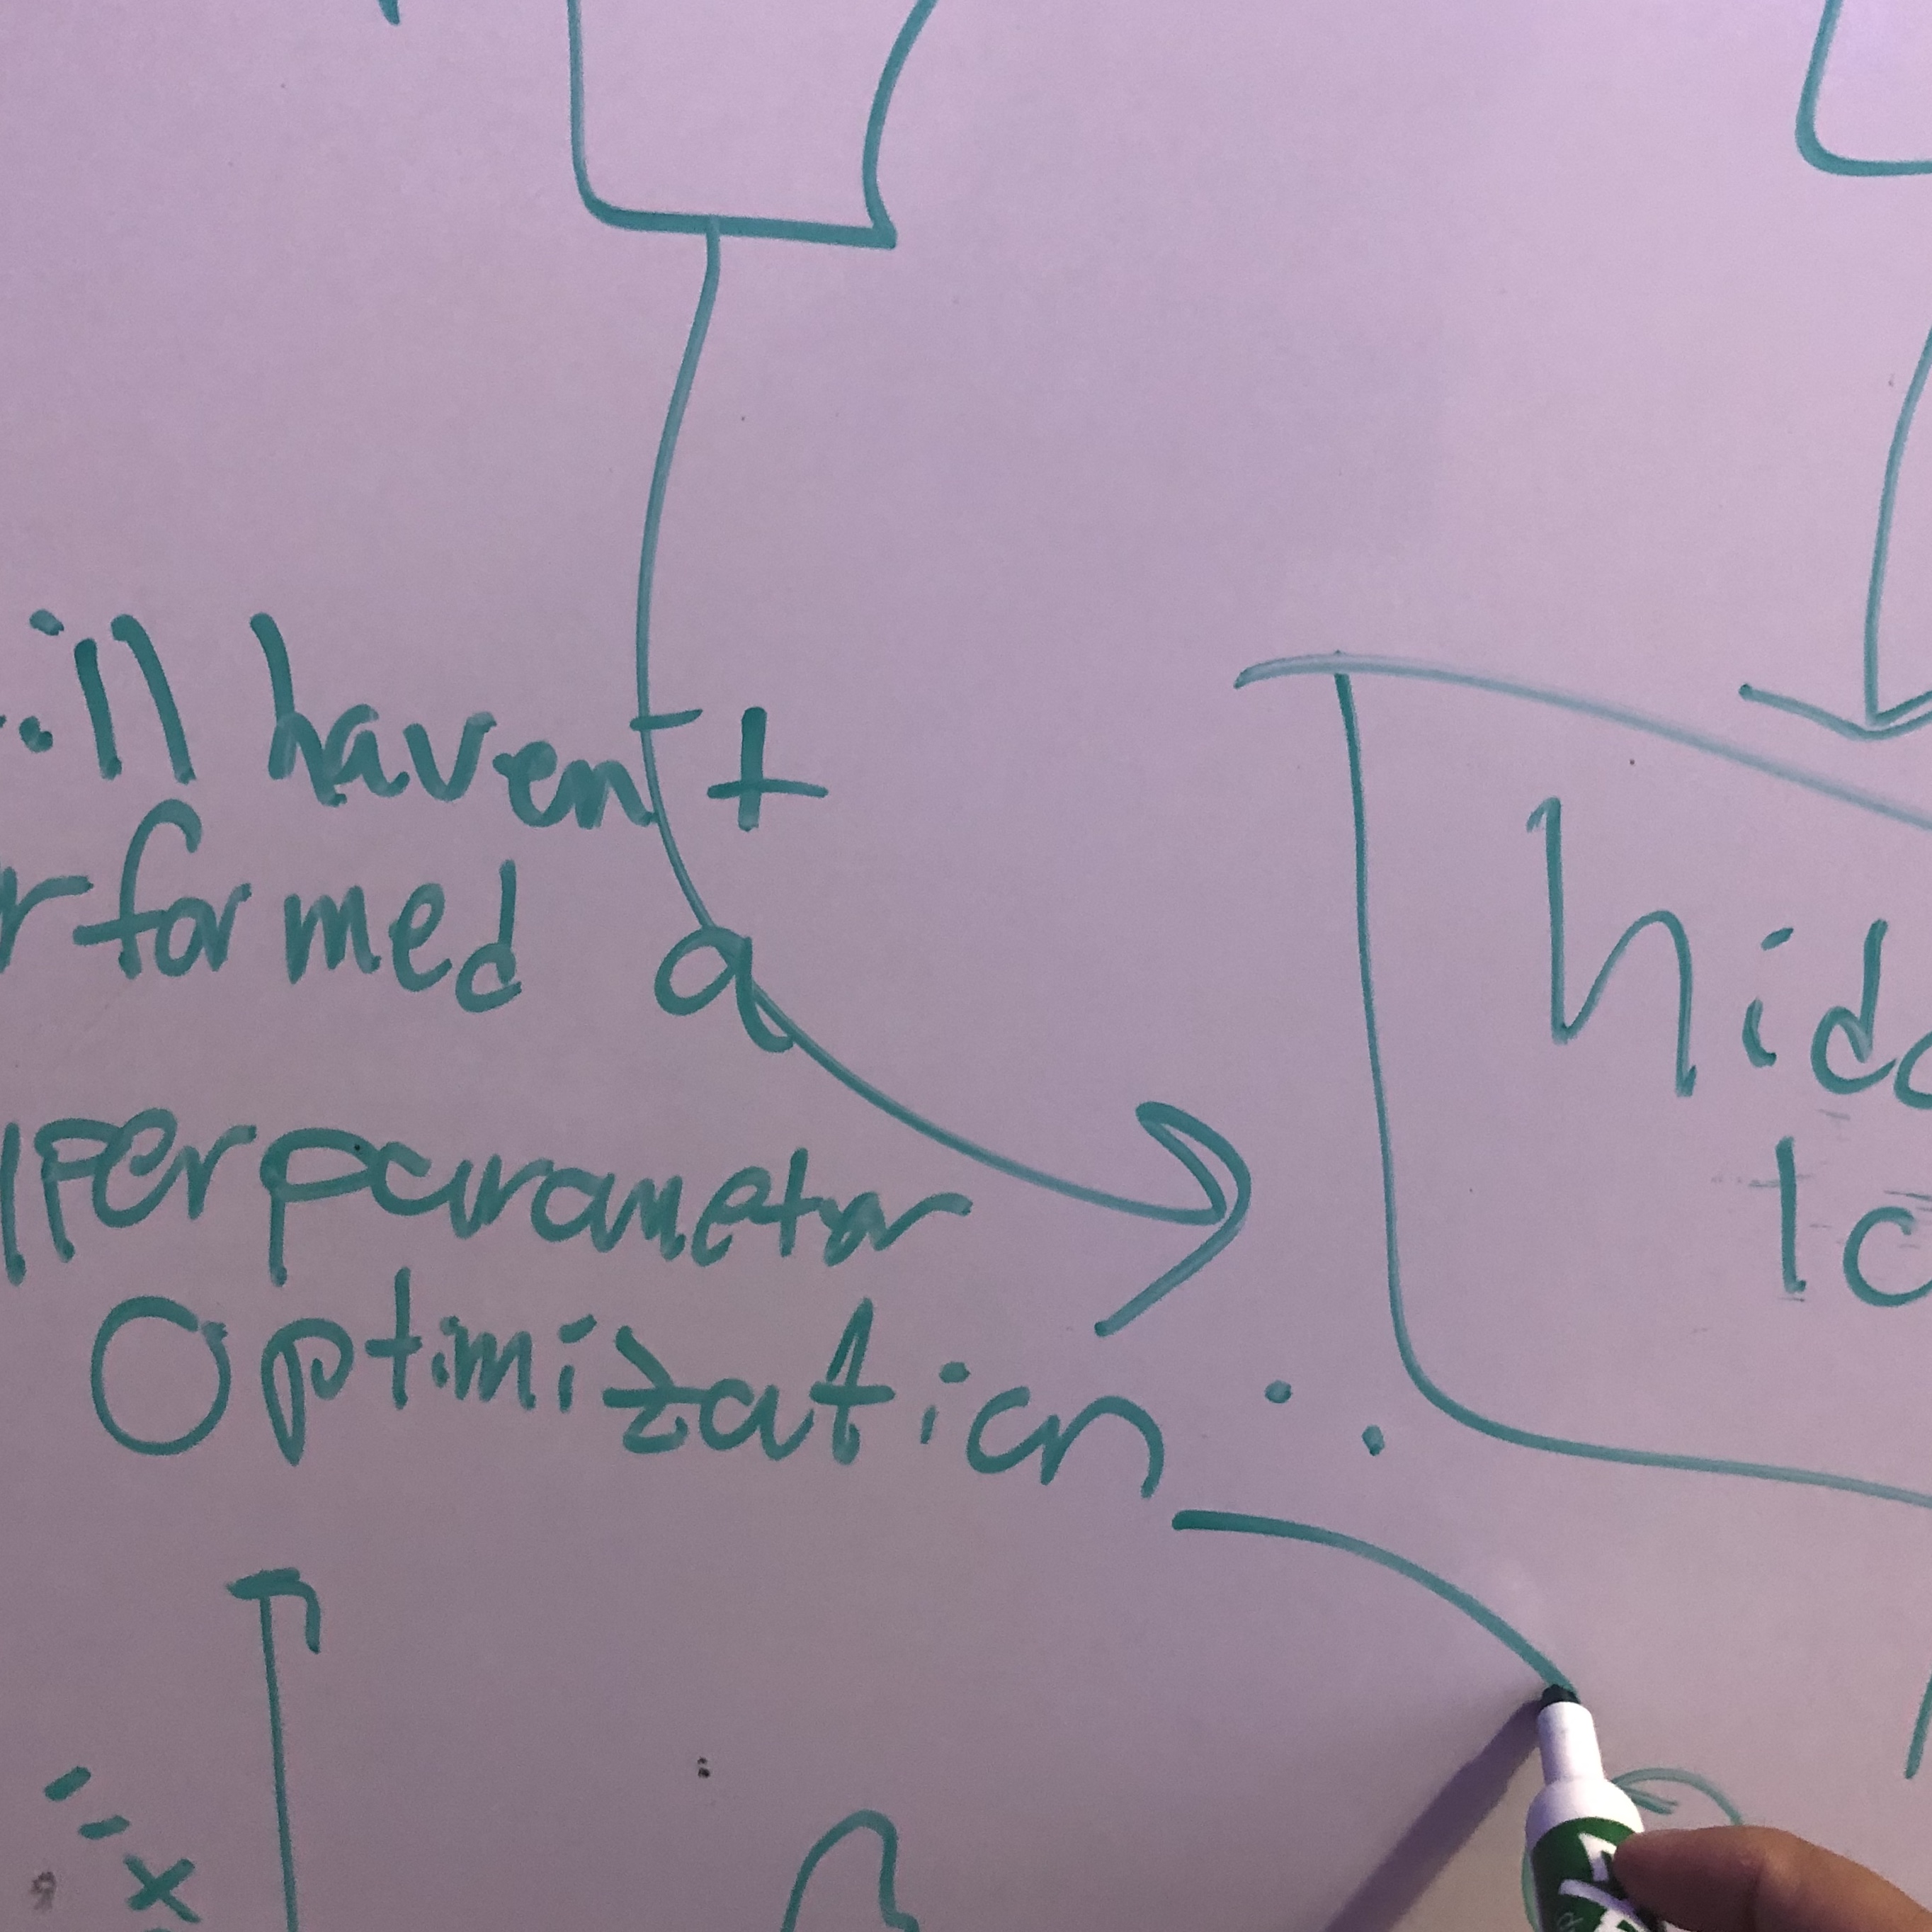 ill haven't
rformed a
yperparameter
Optimization
hidd
to
x